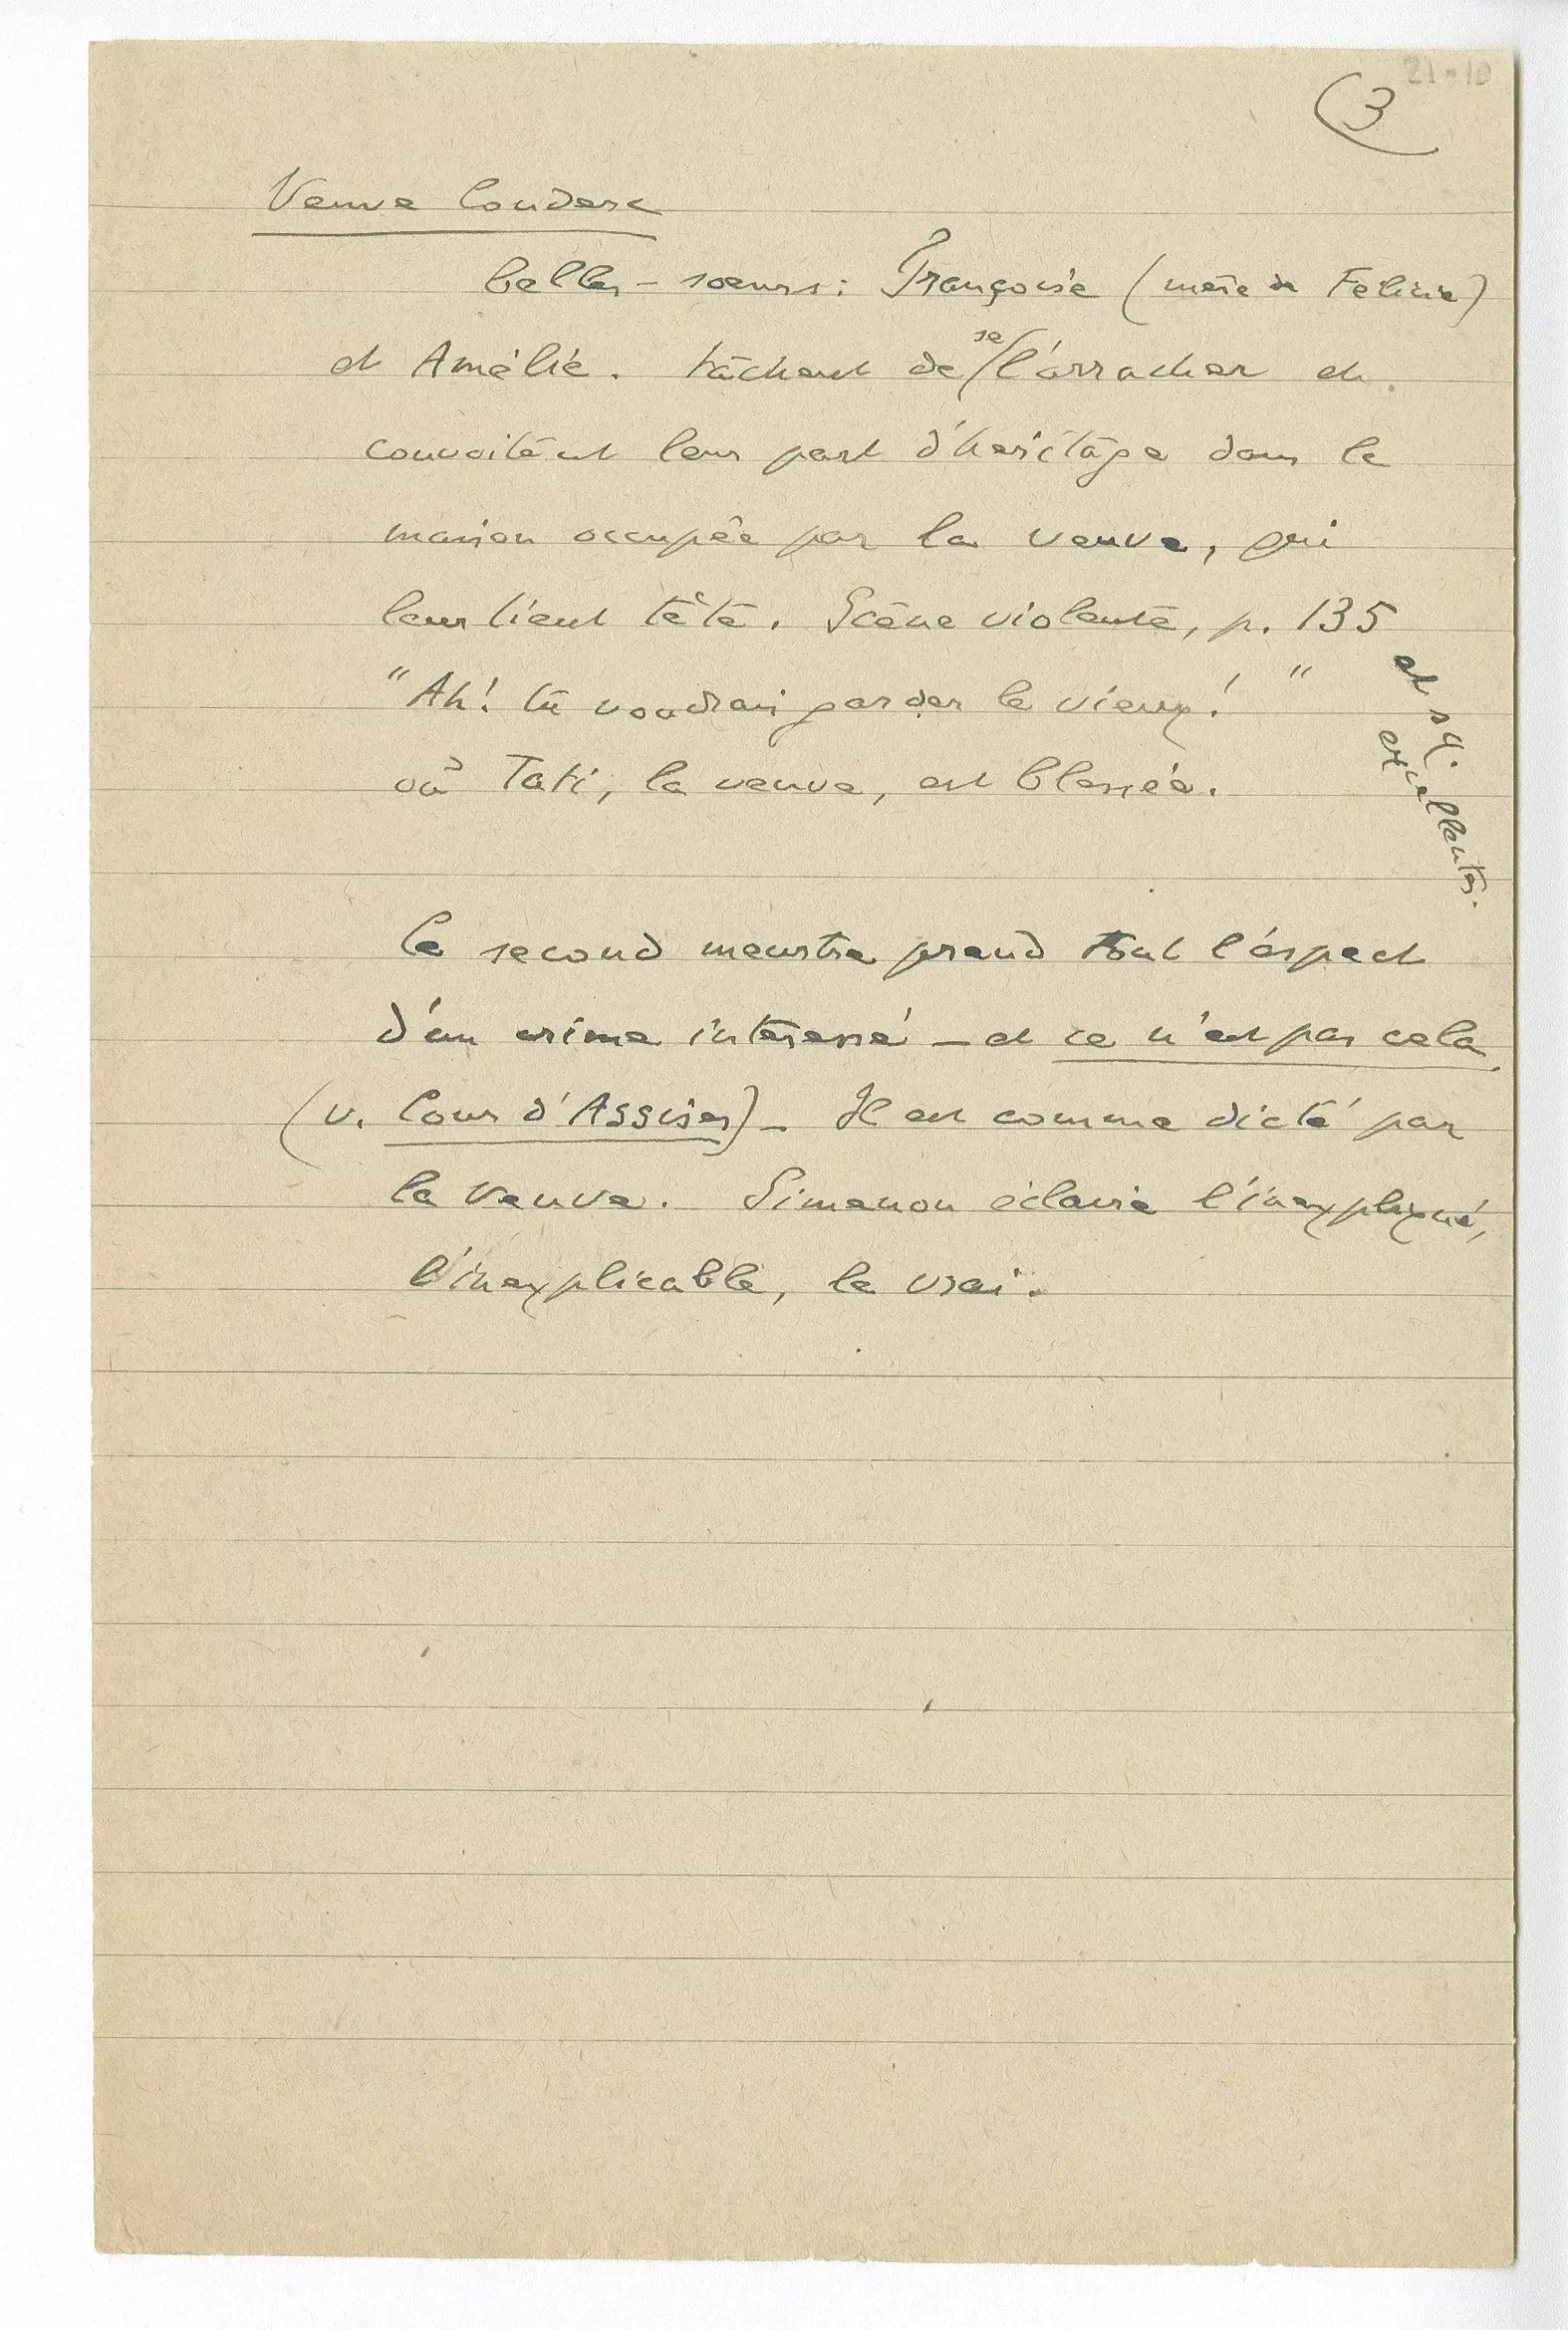 21-10
3
Veuve Couderc
belles-sœurs : Françoise (mère de Félicie)
et Amélie. tâchent de se l'arracher et
convoitent leur part d'héritage dans la
maison occupée par la veuve, qui
leur tient tête. Scène violente, p. 135
et sq.
excellentes.
"Ah! tu voudrais garder le vieux! "
où Tati, la veuve, est blessée.
Le second meurtre prend tout l'aspect
d'un crime intéressé – et ce n'est pas cela
(v. Cour d'Assises) – Il est comme dicté par
la Veuve. Simenon éclaire l'inexpliqué,
l'inexplicable, le vrai.